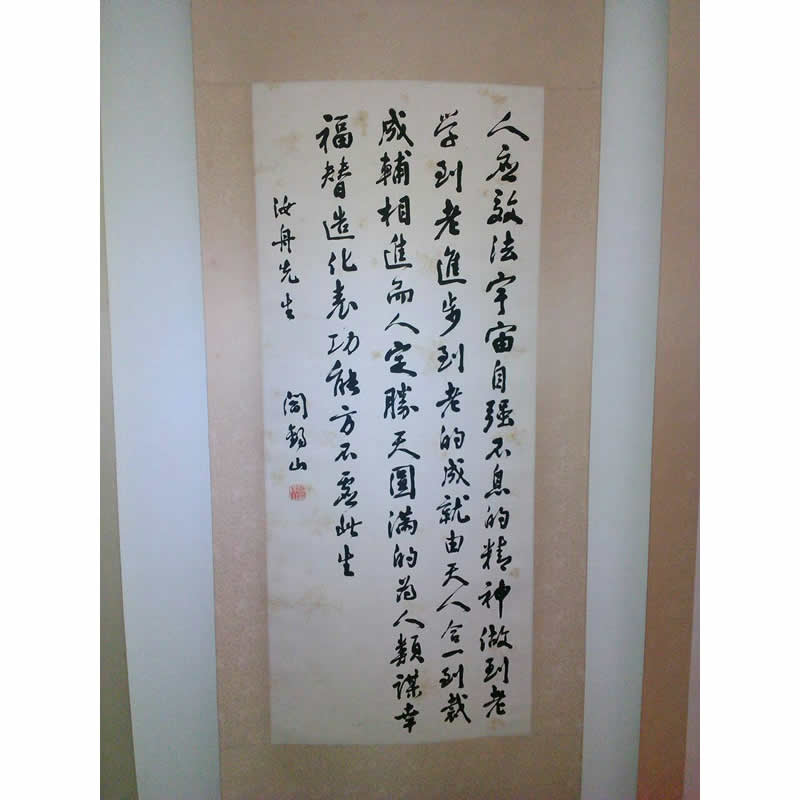 人应效法宇宙自强不息的精神做到老
学到老進步到老的成就由天人合一到裁
成輔相進而人定勝天圓滿的为人類謀幸
福替造化表功能方不虛此生
汝舟先生
閻錫山